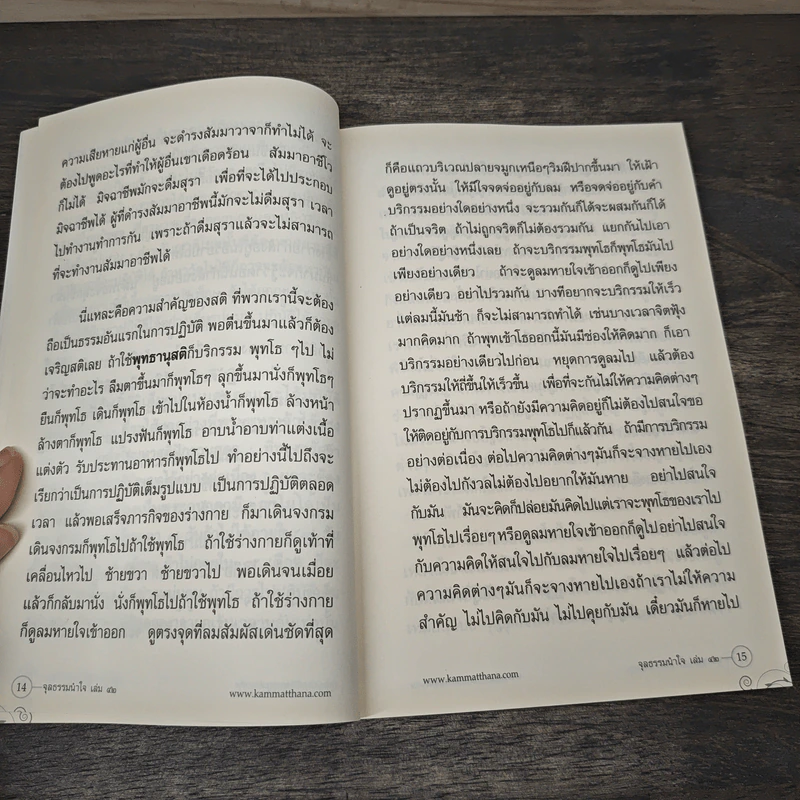 ความเสียหายแก่ผู้อื่น จะดำรงสัมมาวาจาก็ทำไม่ได้ จะ
ต้องไปพูดอะไรที่ทำให้ผู้อื่นเขาเดือดร้อน สัมมาอาชีโว
ก็ไม่ได้ มิจฉาชีพมักจะดื่มสุรา เพื่อที่จะได้ไปประกอบ
มิจฉาชีพได้ ผู้ที่ดำรงสัมมาอาชีพนี้มักจะไม่ดื่มสุรา เวลา
ไปทำงานทำการกัน เพราะถ้าดื่มสุราแล้วจะไม่สามารถ
ที่จะทำงานสัมมาอาชีพได้
นี่แหละคือความสำคัญของสติ ที่พวกเรานี้จะต้อง
ถือเป็นธรรมอันแรกในการปฏิบัติ พอตื่นขึ้นมาแล้วก็ต้อง
เจริญสติเลย ถ้าใช้พุทธานุสติก็บริกรรม พุทโธ ๆไป ไม่
ว่าจะทำอะไร ลืมตาขึ้นมาก็พุทโธๆ ลุกขึ้นมานั่งก็พุทโธๆ
ยืนก็พุทโธ เดินก็พุทโธ เข้าไปในห้องน้ำก็พุทโธ ล้างหน้า
ล้างตาก็พุทโธ แปรงฟันก็พุทโธ อาบน้ำอาบท่าแต่งเนื้อ
แต่งตัว รับประทานอาหารก็พุทโธไป ทำอย่างนี้ไปถึงจะ
เรียกว่าเป็นการปฏิบัติเต็มรูปแบบ เป็นการปฏิบัติตลอด
เวลา แล้วพอเสร็จภารกิจของร่างกาย ก็มาเดินจงกรม
เดินจงกรมก็พุทโธไปถ้าใช้พุทโธ ถ้าใช้ร่างกายก็ดูเท้าที่
เคลื่อนไหวไป ซ้ายขวา ซ้ายขวาไป พอเดินจนเมื่อย
แล้วก็กลับมานั่ง นั่งก็พุทโธไปถ้าใช้พุทโธ ถ้าใช้ร่างกาย
ก็ดูลมหายใจเข้าออก ดูตรงจุดที่ลมสัมผัสเด่นชัดที่สุด
14 จุลธรรมนำใจ เล่ม ๔๒
www.kammatthana.com
ก็คือแถวบริเวณปลายจมูกเหนือๆริมฝีปากขึ้นมา ให้เฝ้า
ดูอยู่ตรงนั้น ให้มีใจจดจ่ออยู่กับลม หรือจดจ่ออยู่กับคำ
บริกรรมอย่างใดอย่างหนึ่ง จะรวมกันก็ได้จะผสมกันก็ได้
ถ้าเป็นจริต ถ้าไม่ถูกจริตก็ไม่ต้องรวมกัน แยกกันไปเอา
อย่างใดอย่างหนึ่งเลย ถ้าจะบริกรรมพุทโธก็พุทโธมันไป
เพียงอย่างเดียว ถ้าจะดูลมหายใจเข้าออกก็ดูไปเพียง
อย่างเดียว อย่าไปรวมกัน บางทีอยากจะบริกรรมให้เร็ว
แต่ลมนี้มันช้า ก็จะไม่สามารถทำได้ เช่นบางเวลาจิตฟุ้ง
มากคิดมาก ถ้าพุทเข้าโธออกนี้มันมีช่องให้คิดมาก ก็เอา
บริกรรมอย่างเดียวไปก่อน หยุดการดูลมไป แล้วต้อง
บริกรรมให้ถี่ขึ้นให้เร็วขึ้น เพื่อที่จะกันไม่ให้ความคิดต่างๆ
ปรากฏขึ้นมา หรือถ้ายังมีความคิดอยู่ก็ไม่ต้องไปสนใจขอ
ให้ติดอยู่กับการบริกรรมพุทโธไปก็แล้วกัน ถ้ามีการบริกรรม
อย่างต่อเนื่อง ต่อไปความคิดต่างๆมันก็จะจางหายไปเอง
ไม่ต้องไปกังวลไม่ต้องไปอยากให้มันหาย อย่าไปสนใจ
กับมัน มันจะคิดก็ปล่อยมันคิดไปแต่เราจะพุทโธของเราไป
พุทโธไปเรื่อยๆ หรือดูลมหายใจเข้าออกก็ดูไป อย่าไปสนใจ
กับความคิดให้สนใจไปกับลมหายใจไปเรื่อยๆ แล้วต่อไป
ความคิดต่างๆมันก็จะจางหายไปเองถ้าเราไม่ให้ความ
สำคัญ ไม่ไปคิดกับมัน ไม่ไปคุยกับมัน เดี๋ยวมันก็หายไป
www.kammatthana.com
จุลธรรมนำใจ เล่ม ๔๒ 15